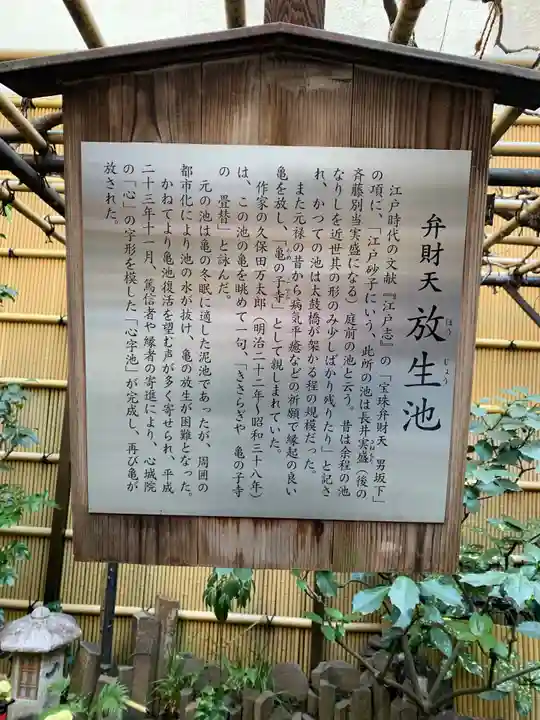 弁財天 放生池
ほう じょう
江戸時代の文献『江戸志』の「宝珠弁財天 男坂下」
の項に、「江戸砂子にいう、此所の池は長井実盛(後の
さねもり
斉藤別当実盛になる)庭前の池と云う。昔は余程の池
なりしを近世其の形のみ少しばかり残りたり」と記さ
れ、かつての池は太鼓橋が架かる程の規模だった。
また元禄の昔から病気平癒などの祈願で縁起の良い
亀を放し、「亀の子寺」として親しまれていた。
作家の久保田万太郎(明治二十二年~昭和三十八年)
は、この池の亀を眺めて一句、「きさらぎや 亀の子寺
の 畳替」と詠んだ。
元の池は亀の冬眠に適した泥池であったが、周囲の
都市化により池の水が抜け、亀の放生が困難となった。
かねてより亀池復活を望む声が多く寄せられ、平成
二十三年十一月 篤信者や縁者の寄進により、心城院
の「心」の字形を模した「心字池」が完成し、再び亀が
放された。